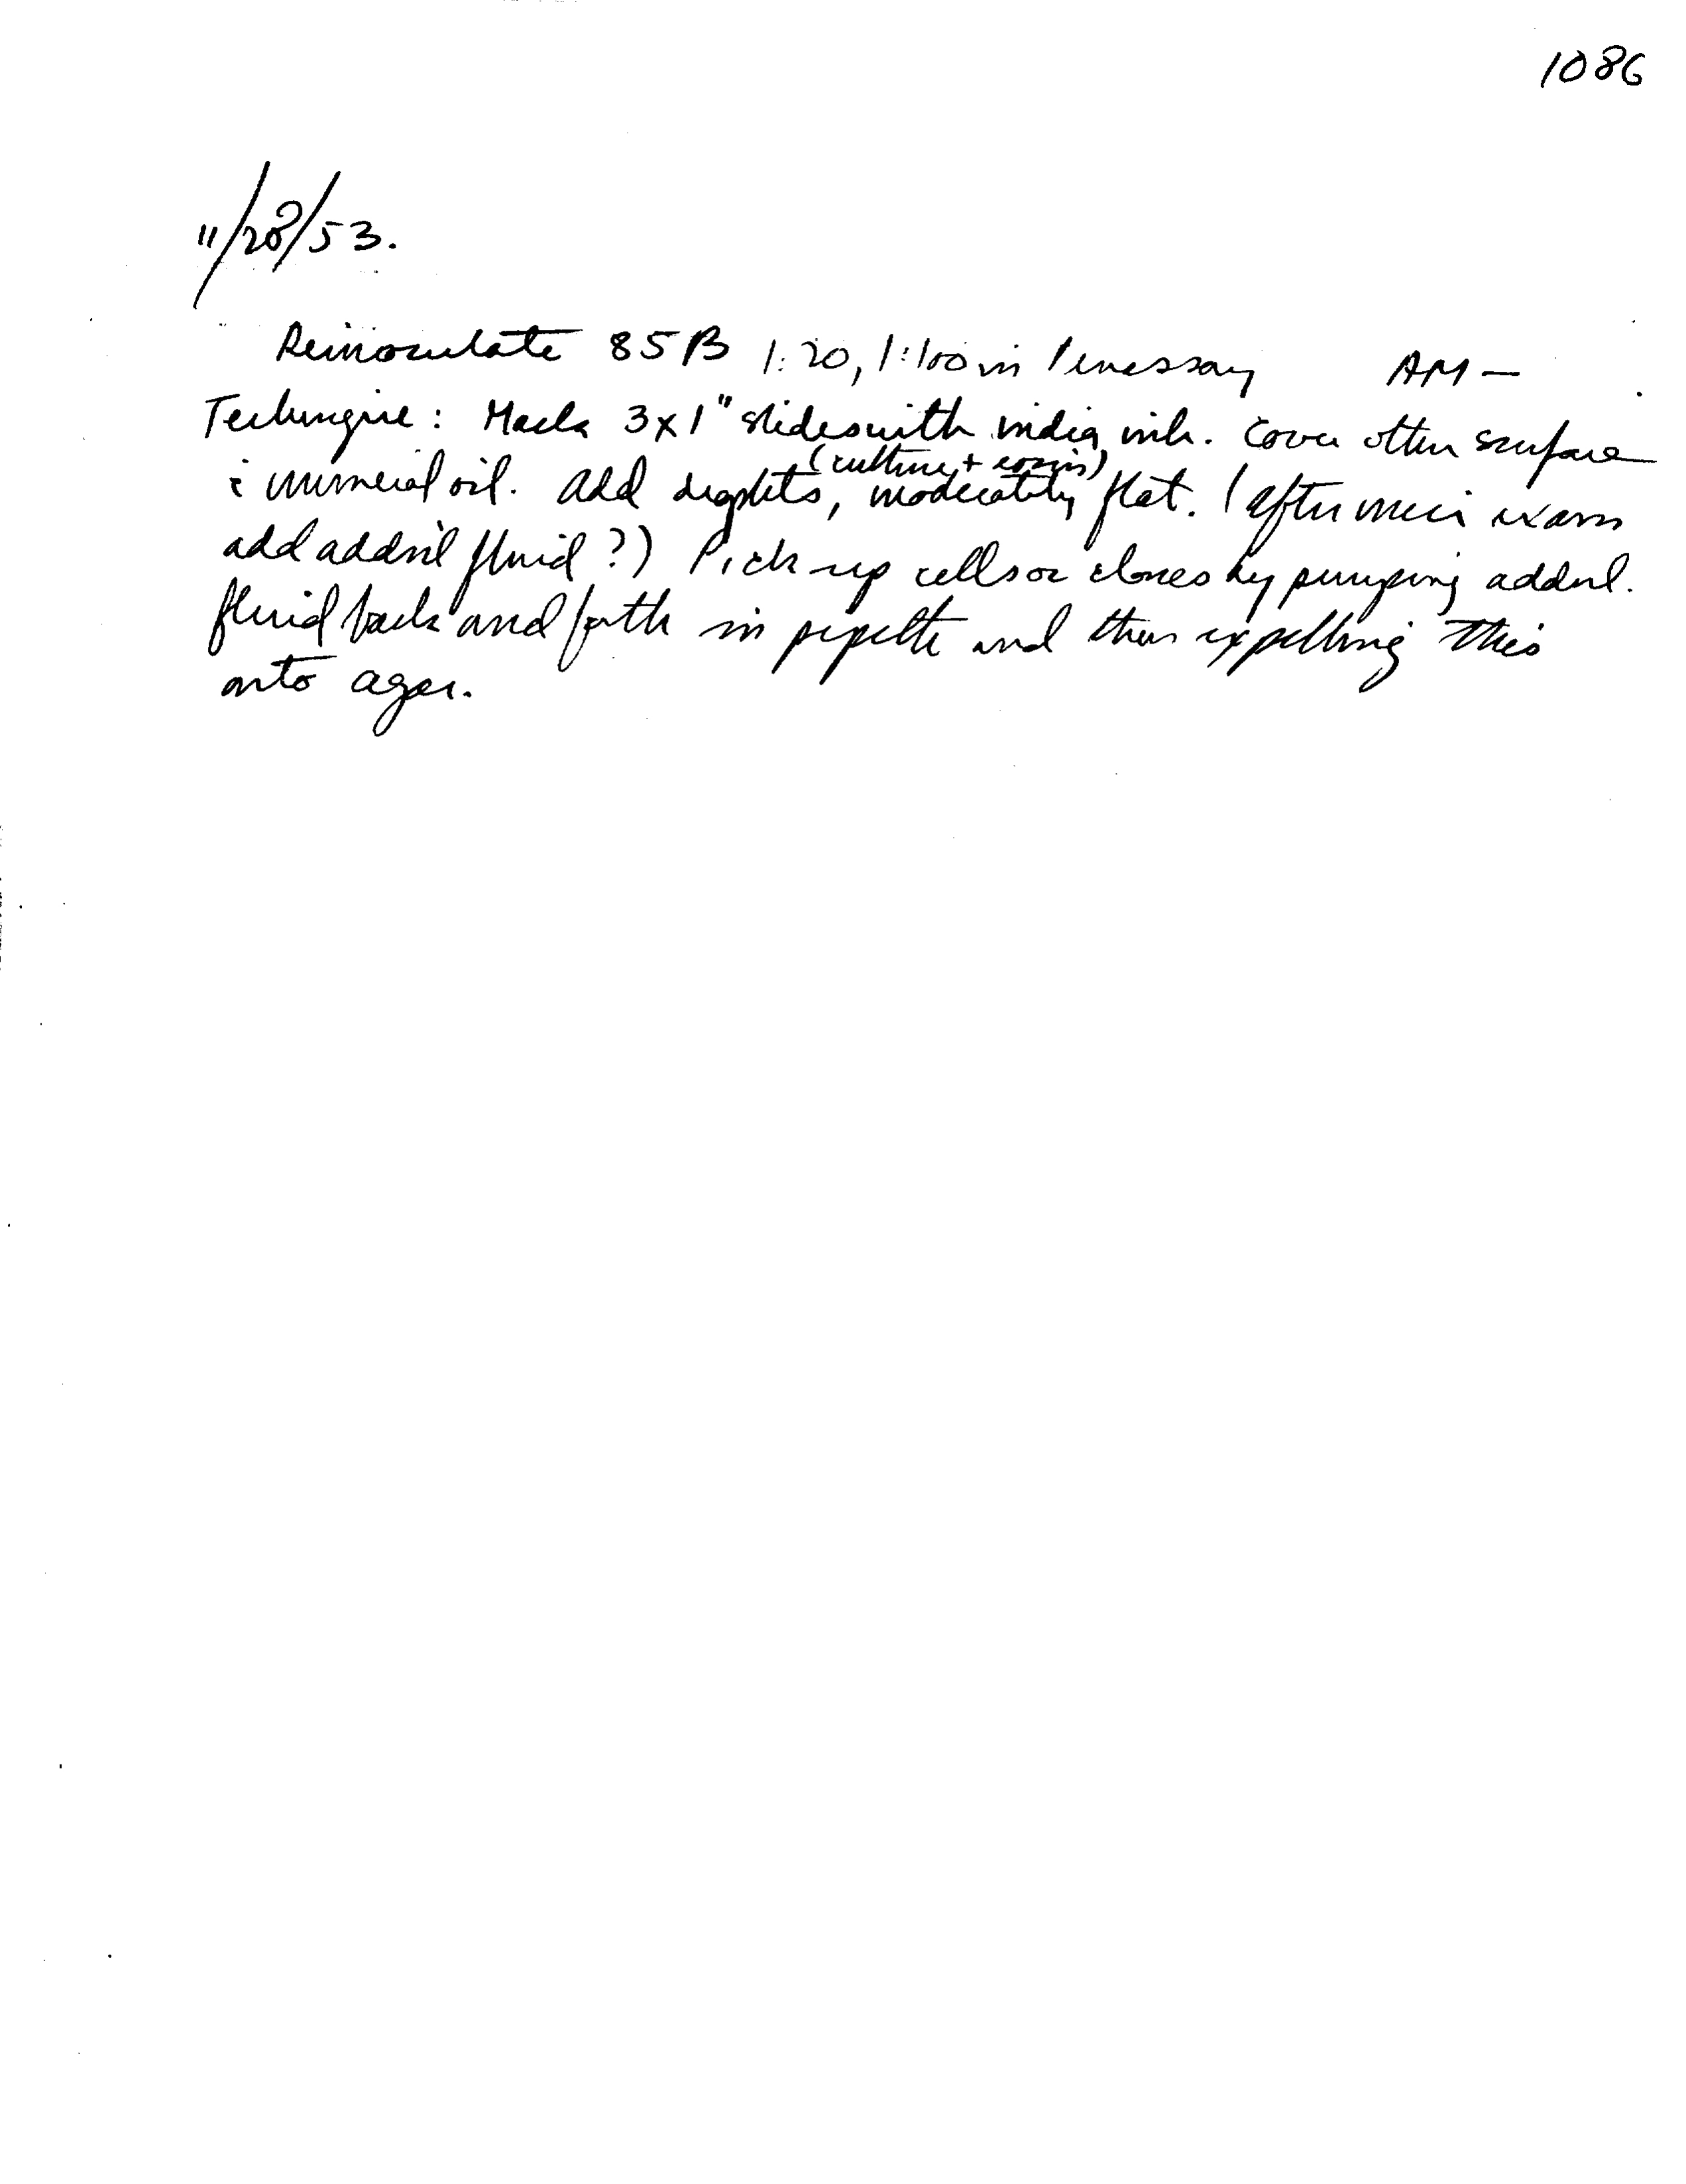 1086
11/28/53.
Reinoculate 85B 1:20, 1:100 in Penassay AM —
Technique: Mark 3x1" slides with india ink. Cover other surface
c̄ mineral oil. Add droplets, (culture + eosin) moderately flat. (after micr exam
add addn'l fluid?) Pick up cells or clones by pumping addnl.
fluid back and forth in pipette and then expelling this
onto agar.